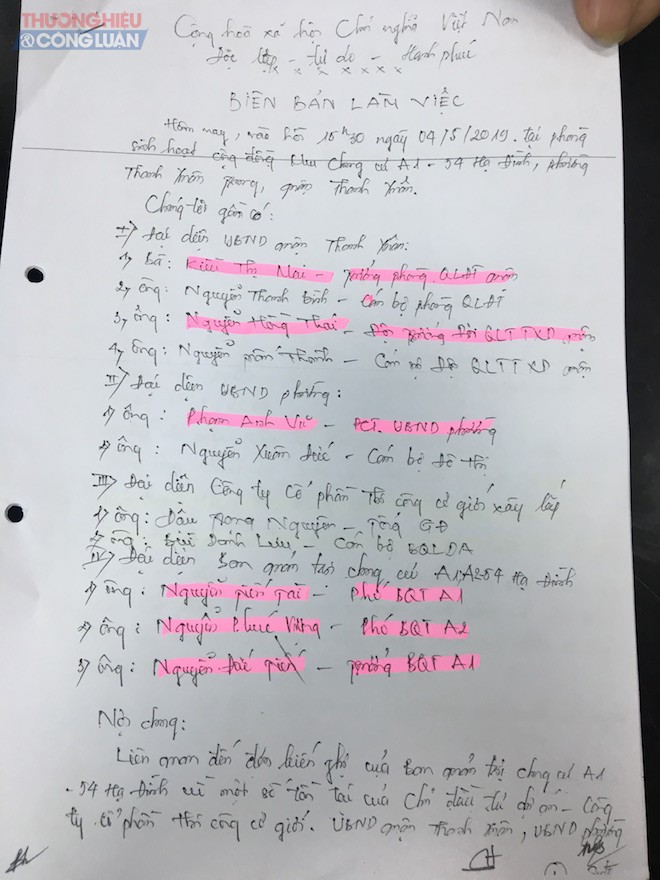 THƯƠNG HIỆU
& CÔNG LUẬN
Cộng hoà xã hội Chủ nghĩa Việt Nam
Độc lập - tự do - Hạnh phúc
x x x x x x x
BIÊN BẢN LÀM VIỆC
Hôm nay, vào hồi 15h30 ngày 04/5/2019. tại phòng
sinh hoạt cộng đồng khu chung cư A1 - 54 Hạ Đình, phường
Thanh Xuân Trung, quận Thanh Xuân.
Chúng tôi gồm có:
I> Đại diện UBND quận Thanh Xuân:
1) Bà: Kiều Thị Nai - Trưởng phòng QLĐT quận
2) ông: Nguyễn Thanh Bình - Cán bộ phòng QLĐT
3) ông: Nguyễn Hồng Thái - Đội trưởng Đội QLTTXD quận
4) ông: Nguyễn Thành - Cán bộ Đội QLTTXD quận
II> Đại diện UBND phường:
1) ông: Phạm Anh Vũ - PCT UBND phường
2) ông: Nguyễn Xuân Đức - Cán bộ Đô thị
III> Đại diện Công ty Cổ phần Thi công cơ giới xây lắp
1) ông: Đầu Trọng Nguyên - Tổng GĐ
2) ông: Bùi Danh Lưu, - Cán bộ BQLDA
IV> Đại diện Ban quản trị chung cư A1, A2-54 Hạ Đình
1) ông: Nguyễn - Phó BQT A1
2) ông: Nguyễn Phúc - Phó BQT A2
3) ông: Nguyễn Đức - Trưởng BQT A1
Nội dung:
Liên quan đến đơn kiến nghị của Ban quản trị chung cư A1
- 54 Hạ Đình về một số tồn tại của Chủ đầu tư dự án - Công
ty cổ phần thi công cơ giới. UBND quận Thanh Xuân, UBND phường